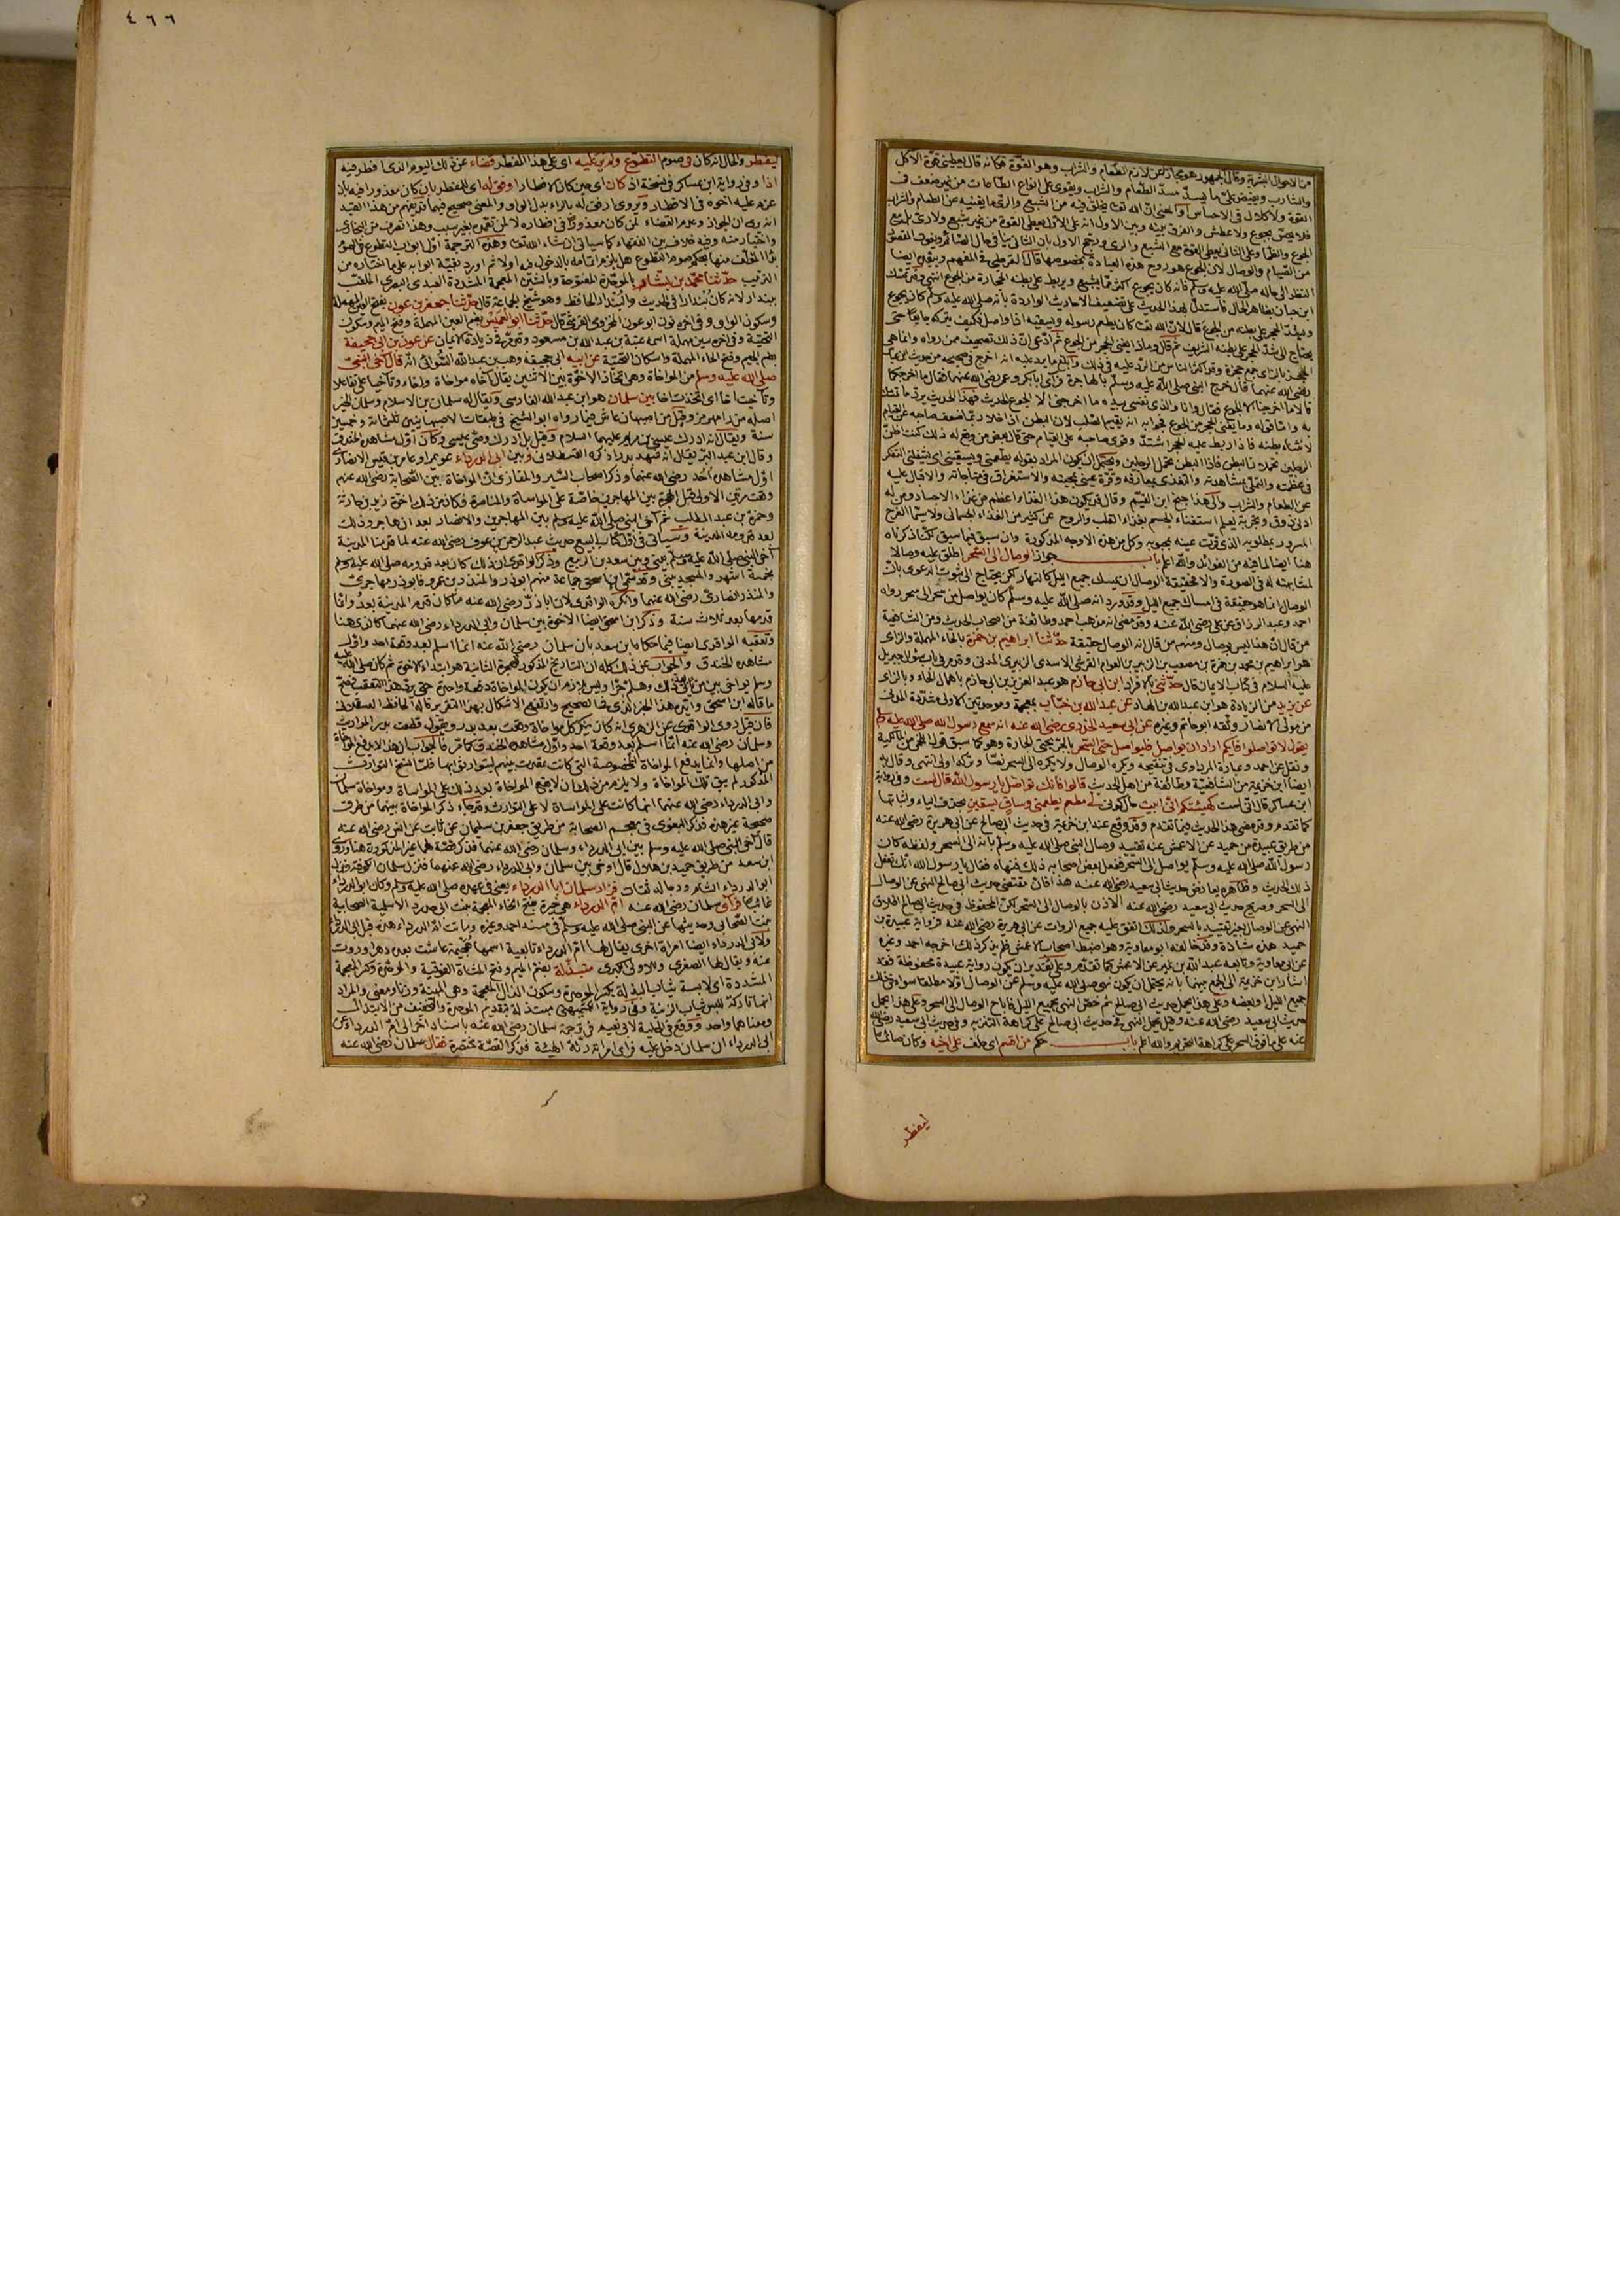 من الاحوال البشرية وقال الجمهور هو مجاز عن لازم الطعام والشراب وهو القوة فكانه قال يعطيني قوة الآكل
والشارب ويفيض علي ما يسد مسد الطعام والشراب ويقوي على انواع الطاعات من غير ضعف في
القوة ولا كلال في الاحساس او المعنى ان الله تعالى يخلق فيه من الشبع والري ما يغنيه عن الطعام والشراب
فلا يحس بجوع ولا عطش والفرق بينه وبين الاول انه على الاول يعطي القوة من غير شبع ولا ري بل مع
الجوع والظمأ وعلى الثاني يعطي القوة مع الشبع والري ورجح الاول بان الثاني ينافي حال الصائم ويفوت المقصود
من الصيام والوصال لان الجوع هو روح هذه العبادة بخصوصها قال القرطبي في المفهم ويبعده ايضا
النظر الى حاله صلى الله عليه وسلم فانه كان يجوع اكثر مما يشبع ويربط على بطنه الحجارة من الجوع انتهى وقد تمسك
ابن حبان بظاهر الحال فاستدل بهذا الحديث على تضعيف الاحاديث الواردة بانه صلى الله عليه وسلم كان يجوع
ويشد الحجر على بطنه من الجوع قال لان الله تعالى كان يطعم رسوله ويسقيه اذا واصل فكيف يتركه جايعا حتى
يحتاج الى شد الحجر على بطنه الشريف ثم قال وماذا يغني الحجر من الجوع ثم ادعى ان ذلك تصحيف ممن رواه وانما هي
الحجز بالزاي جمع حجزة وقد اكثر الناس من الرد عليه في ذلك وابلغ ما يرد عليه انه اخرج في صحيحه من حديث ابن عباس
رضي الله عنهما قال خرج النبي صلى الله عليه وسلم بالهاجرة فرأى ابا بكر وعمر رضي الله عنهما فقال ما اخرجكما
قالا ما اخرجنا الا الجوع فقال وانا والذي نفسي بيده ما اخرجني الا الجوع الحديث فهذا الحديث يرد ما تمسك
به واما قوله وما يغني الحجر من الجوع فجوابه انه يقيم الصلب لان البطن اذا خلا ربما ضعف صاحبه عن القيام
لانثناء بطنه فاذا ربط عليه الحجر اشتد وقوي صاحبه على القيام حتى قال بعض من وقع له ذلك كنت اظن
الرجلين تحملان البطن فاذا البطن تحمل الرجلين ويحتمل ان يكون المراد بقوله يطعمني ويسقيني اي يشغلني بالتفكر
في عظمته والتملي بمشاهدته والتغذي بمعارفه وقرة عيني بمحبته والاستغراق في مناجاته والاقبال عليه
عن الطعام والشراب والى هذا جنح ابن القيم وقال قد يكون هذا الغذاء اعظم من غذاء الاجساد ومن له
ادنى ذوق وتجربة يعلم استغناء الجسم بغذاء القلب والروح عن كثير من الغذاء الجسماني ولا سيما الفرح
المسرور بمطلوبه الذي قرت عينه بمحبوبه وكل من هذه الاوجه المذكورة وان سبق فيما سبق لكنا ذكرناه
هنا ايضا لما فيه من الفوائد والله اعلم باب جواز الوصال الى السحر اطلق عليه وصالا
لمشابهته له في الصورة والا فحقيقة الوصال ان يمسك جميع الليل كالنهار لكن يحتاج الى ثبوت الدعوى بان
الوصال انما هو حقيقة في امساك جميع الليل وقد ورد انه صلى الله عليه وسلم كان يواصل من سحر الى سحر رواه
احمد وعبد الرزاق عن علي رضي الله عنه وقد مضى انه مذهب احمد وطائفة من اصحاب الحديث ومن الشافعية
من قال ان هذا ليس بوصال ومنهم من قال انه الوصال حقيقة حدثنا ابراهيم بن حمزة بالحاء المهملة والزاي
هو ابراهيم بن محمد بن حمزة بن مصعب بن الزبير بن العوام القرشي الاسدي الزبيري المدني وقد مر في باب سؤال جبريل
عليه السلام في كتاب الايمان قال حدثني بالافراد ابن ابي حازم هو عبد العزيز بن ابي حازم باهمال الحاء وبالزاي
عن يزيد من الزيادة هو ابن عبد الله بن الهاد عن عبد الله بن خباب بمعجمة وموحدتين الاولى مشددة المدني
من موالي الانصار وثقه ابو حاتم وغيره عن ابي سعيد الخدري رضي الله عنه انه سمع رسول الله صلى الله عليه وسلم
يقول لا تواصلوا فايكم اراد ان يواصل فليواصل حتى السحر بالجر بحتى الجارة وهو كما سبق قول اللخمي من المالكية
ونقل عن احمد وعبارة المرداوي في تنقيحه ويكره الوصال ولا يكره الى السحر نصا وتركه اولى انتهى وقال به
ايضا ابن خزيمة من الشافعية وطائفة من اهل الحديث قالوا فانك تواصل يا رسول الله قال لست وفي رواية
ابن عساكر قال اني لست كهيئتكم اني ابيت حال كوني لي مطعم يطعمني وساق يسقين بحذف الياء واثباتها
كما تقدم وقد مضى هذا الحديث فيما تقدم وقد وقع عند ابن خزيمة في حديث ابي صالح عن ابي هريرة رضي الله عنه
من طريق عبيدة بن حميد عن الاعمش عنه تقييد وصال النبي صلى الله عليه وسلم بانه الى السحر ولفظه كان
رسول الله صلى الله عليه وسلم يواصل الى السحر ففعل بعض اصحابه ذلك فنهاه فقال يا رسول الله انك تفعل
ذلك الحديث وظاهره يعارض حديث ابي سعيد رضي الله عنه هذا فان مقتضى حديث ابي صالح النهي عن الوصال
الى السحر وصريح حديث ابي سعيد رضي الله عنه الاذن بالوصال الى السحر لكن المحفوظ في حديث ابي صالح اطلاق
النهي عن الوصال بغير تقييد بالسحر ولذلك اتفق عليه جميع الرواة عن ابي هريرة رضي الله عنه فرواية عبيدة بن
حميد هذه شاذة وقد خالفه ابو معاوية وهو اضبط اصحاب الاعمش فلم يذكر ذلك اخرجه احمد وغيره
عن ابي معاوية وتابعه عبد الله بن نمير عن الاعمش كما تقدم وعلى تقدير ان يكون رواية عبيدة محفوظة فقد
اشار ابن خزيمة الى الجمع بينهما بانه يحتمل ان يكون نهى صلى الله عليه وسلم عن الوصال اولا مطلقا سواء في ذلك
جميع الليل او بعضه وعلى هذا يحمل حديث ابي صالح ثم خص النهي بجميع الليل فاباح الوصال الى السحر وعلى هذا يحمل
حديث ابي سعيد رضي الله عنه وقيل يحمل النهي في حديث ابي صالح على كراهة التنزيه وفي حديث ابي سعيد رضي الله
عنه على ما فوق السحر على كراهة التحريم والله اعلم باب حكم من اقسم اي حلف على اخيه وكان صائما
ليفطر
٤٦٦
ليفطر والحال انه كان في صوم التطوع ولم ير عليه اي على هذا المفطر قضاء عن ذلك اليوم الذي افطر فيه
اذا وفي رواية ابن عساكر في نسخة اذ كان اي حين كان الافطار اوفق له اي للمفطر بان كان معذورا فيه بان
عزم عليه اخوه في الافطار ويروى ارفق له بالراء بدل الواو والمعنى صحيح فيهما قد يفهم من هذا القيد
انه يرى ان الجواز وعدم القضاء لمن كان معذورا في افطاره لا لمن تعمده بغير سبب وهذا تصرف من البخاري
واختيار منه وفيه خلاف بين الفقهاء كما سياتي ان شاء الله تعالى وهذه الترجمة اول ابواب التطوع في الصوم
بدأ المؤلف منها بحكم صوم التطوع هل يلزم اتمامه بالدخول فيه او لا ثم اورد بقية ابوابه على ما اختاره من
الترتيب حدثنا محمد بن بشار بالموحدة المفتوحة وبالشين المعجمة المشددة العبدي البصري الملقب
ببندار لانه كان بندارا في الحديث والبندار الحافظ وهو شيخ الجماعة قال حدثنا جعفر بن عون بفتح العين المهملة
وسكون الواو وفي اخره نون ابو عون المخزومي القرشي قال حدثنا ابو العميس بضم العين المهملة وفتح الميم وسكون
التحتية وفي اخره سين مهملة اسمه عتبة بن عبد الله بن مسعود وقد مر في زيادة الايمان عن عون بن ابي جحيفة
بضم الجيم وفتح الحاء المهملة واسكان التحتية عن ابيه ابي جحيفة وهب بن عبد الله السوائي انه قال آخى النبي
صلى الله عليه وسلم من المواخاة وهي اتخاذ الاخوة بين الاثنين يقال آخاه مواخاة واخاء وتآخيا على تفاعلا
وتأخيت اخا اي اتخذت اخا بين سلمان هو ابن عبد الله الفارسي ويقال له سلمان بن الاسلام وسلمان الخير
اصله من رامهرمز وقيل من اصبهان عاش فيما رواه ابو الشيخ في طبقات الاصبهانيين ثلثمائة وخمسين
سنة ويقال انه ادرك عيسى بن مريم عليهما السلام وقيل بل ادرك وصي عيسى وكان اول مشاهده الخندق
وقال ابن عبد البر يقال انه شهد بدرا ذكره القسطلاني وبين ابي الدرداء عويمر او عامر بن قيس الانصاري
اول مشاهده احد رضي الله عنهما وذكر اصحاب السير والمغازي ان المواخاة بين الصحابة رضي الله عنهم
وقعت مرتين الاولى قبل الهجرة بين المهاجرين خاصة على المواساة والمناصرة فكان من ذلك اخوة زيد بن حارثة
وحمزة بن عبد المطلب ثم آخى النبي صلى الله عليه وسلم بين المهاجرين والانصار بعد ان هاجر وذلك
بعد قدومه المدينة وسياتي في اول كتاب البيع حديث عبد الرحمن بن عوف رضي الله عنه لما قدمنا المدينة
آخى النبي صلى الله عليه وسلم بيني وبين سعد بن الربيع وذكر الواقدي ان ذلك كان بعد قدومه صلى الله عليه وسلم
بخمسة اشهر والمسجد يبنى وقد سمى ابن اسحق جماعة منهم ابو ذر والمنذر بن عمرو فابو ذر مهاجري
والمنذر انصاري رضي الله عنهما وانكره الواقدي لان ابا ذر رضي الله عنه ما كان قدم المدينة بعد وانما
قدمها بعد ثلاث سنة وذكر ابن اسحق ايضا الاخوة بين سلمان وابي الدرداء رضي الله عنهما كالذي هنا
وتعقبه الواقدي ايضا فيما حكاه ابن سعد بان سلمان رضي الله عنه انما اسلم بعد وقعة احد واول
مشاهده الخندق والجواب عن ذلك كله ان التاريخ المذكور للهجرة الثانية هو ابتداء الاخوة ثم كان صلى الله عليه
وسلم يواخي بين من ياتي بعد ذلك وهلم جرا وليس بلازم ان يكون المواخاة دفعة واحدة حتى يرد هذا التعقب فصح
ما قاله ابن اسحق وايده هذا الخبر الذي في الصحيح وارتفع الاشكال بهذا التقرير قاله الحافظ العسقلاني
فان قيل روى الواقدي عن الزهري انه كان ينكر كل مواخاة وقعت بعد بدر ويقول قطعت بدر المواريث
وسلمان رضي الله عنه انما اسلم بعد وقعة احد واول مشاهده الخندق كما مر فالجواب ان هذا لا يدفع المواخاة
من اصلها وانما يدفع المواخاة المخصوصة التي كانت عقدت بينهم ليتوارثوا بها فلما نسخ التوارث
المذكور لم يبق تلك المواخاة ولا يلزم من ذلك ان لا يقع المواخاة بعد ذلك على المواساة ومواخاة سلمان
وابي الدرداء رضي الله عنهما انما كانت على المواساة لا على التوارث وقد جاء ذكر المواخاة بينهما من طرق
صحيحة غير هذه فذكر البغوي في معجم الصحابة من طريق جعفر بن سليمان عن ثابت عن انس رضي الله عنه
قال آخى النبي صلى الله عليه وسلم بين ابي الدرداء وسلمان رضي الله عنهما فذكر قصة لهما غير المذكورة هنا وروى
ابن سعد من طريق حميد بن هلال قال اوخي بين سلمان وابي الدرداء رضي الله عنهما فنزل سلمان الكوفة ونزل
ابو الدرداء الشام ورجاله ثقات فزار سلمان ابا الدرداء يعني في عهده صلى الله عليه وسلم وكان ابو الدرداء
غائبا فرأى سلمان رضي الله عنه ام الدرداء هي خيرة بفتح الخاء المعجمة بنت ابي حدرد الاسلمية الصحابية
بنت الصحابي وحديثها عن النبي صلى الله عليه وسلم في مسند احمد وغيره وماتت ام الدرداء هذه قبل ابي الدرداء
ولابي الدرداء ايضا امراة اخرى يقال لها ام الدرداء تابعية اسمها هجيمة عاشت بعده دهرا وروت
عنه ويقال لها الصغرى وللاولى الكبرى متبذلة بضم الميم وفتح المثناة الفوقية والموحدة وكسر المعجمة
المشددة اي لابسة ثياب البذلة بكسر الموحدة وسكون الذال المعجمة وهي المهنة وزنا ومعنى والمراد
انها تاركة للبس ثياب الزينة وفي رواية الكشميهني مبتذلة بتقديم الموحدة والتخفيف من الابتذال
ومعناهما واحد ووقع في الحلية لابي نعيم في ترجمة سلمان رضي الله عنه باسناد اخر الى ام الدرداء عن
ابي الدرداء ان سلمان دخل عليه فرأى امراته رثة الهيئة فذكر القصة مختصرة فقال سلمان رضي الله عنه